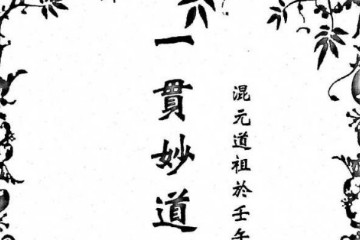 一貫妙道
混元道祖於壬午